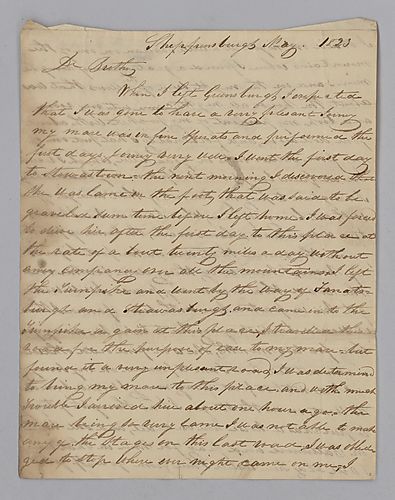 Shippinsburgh May 1823
Dr Brother
When I left Greensburgh I expected
that I was gone to have a very plesant Jurny
my mare was in fine sperats and purformed the
first days Jurny very well I went the first day
to the next morning I discovered that
she was lame in the foot that was said to be
graveld sum time before I left home I was forced
to drive her after the first day to this place at
the rate of a bout twenty miles a day without
any companey over all the mountains I left
the Turnpike and went by the way of
burgh and Strawsburgh and came in to the
Turnpike a gain at this place I traveled this
road for the purpose of ease to my mare but
found it a very unplesent road I was determind
to bring my mare to this place and with much
trouble I arived here about one hour a go the
mare being so very lame I was not able to make
any of the Stages on this last road I was oblid
ged to stop where ever night came on me, I